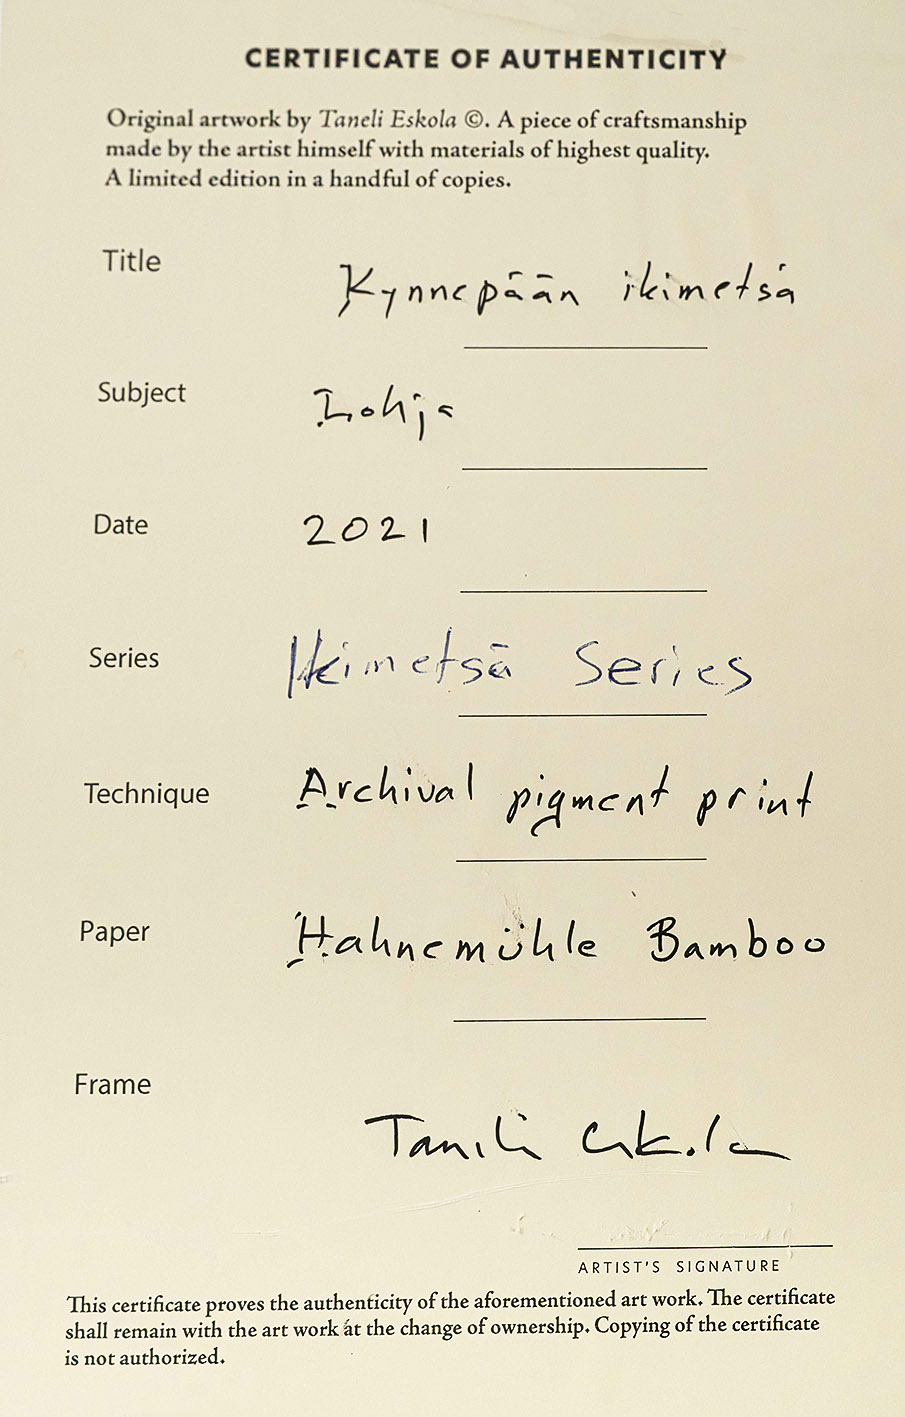 CERTIFICATE OF AUTHENTICITY
Original artwork by Taneli Eskola ©. A piece of craftsmanship
made by the artist himself with materials of highest quality.
A limited edition in a handful of copies.
Title
Kynnepään ikimetsä
Subject
Lohja
Date
2021
Series
Ikimetsä Series
Technique
Archival pigment print
Paper
Hahnemühle Bamboo
Frame
Taneli Eskola
ARTIST'S SIGNATURE
This certificate proves the authenticity of the aforementioned art work. The certificate
shall remain with the art work at the change of ownership. Copying of the certificate
is not authorized.